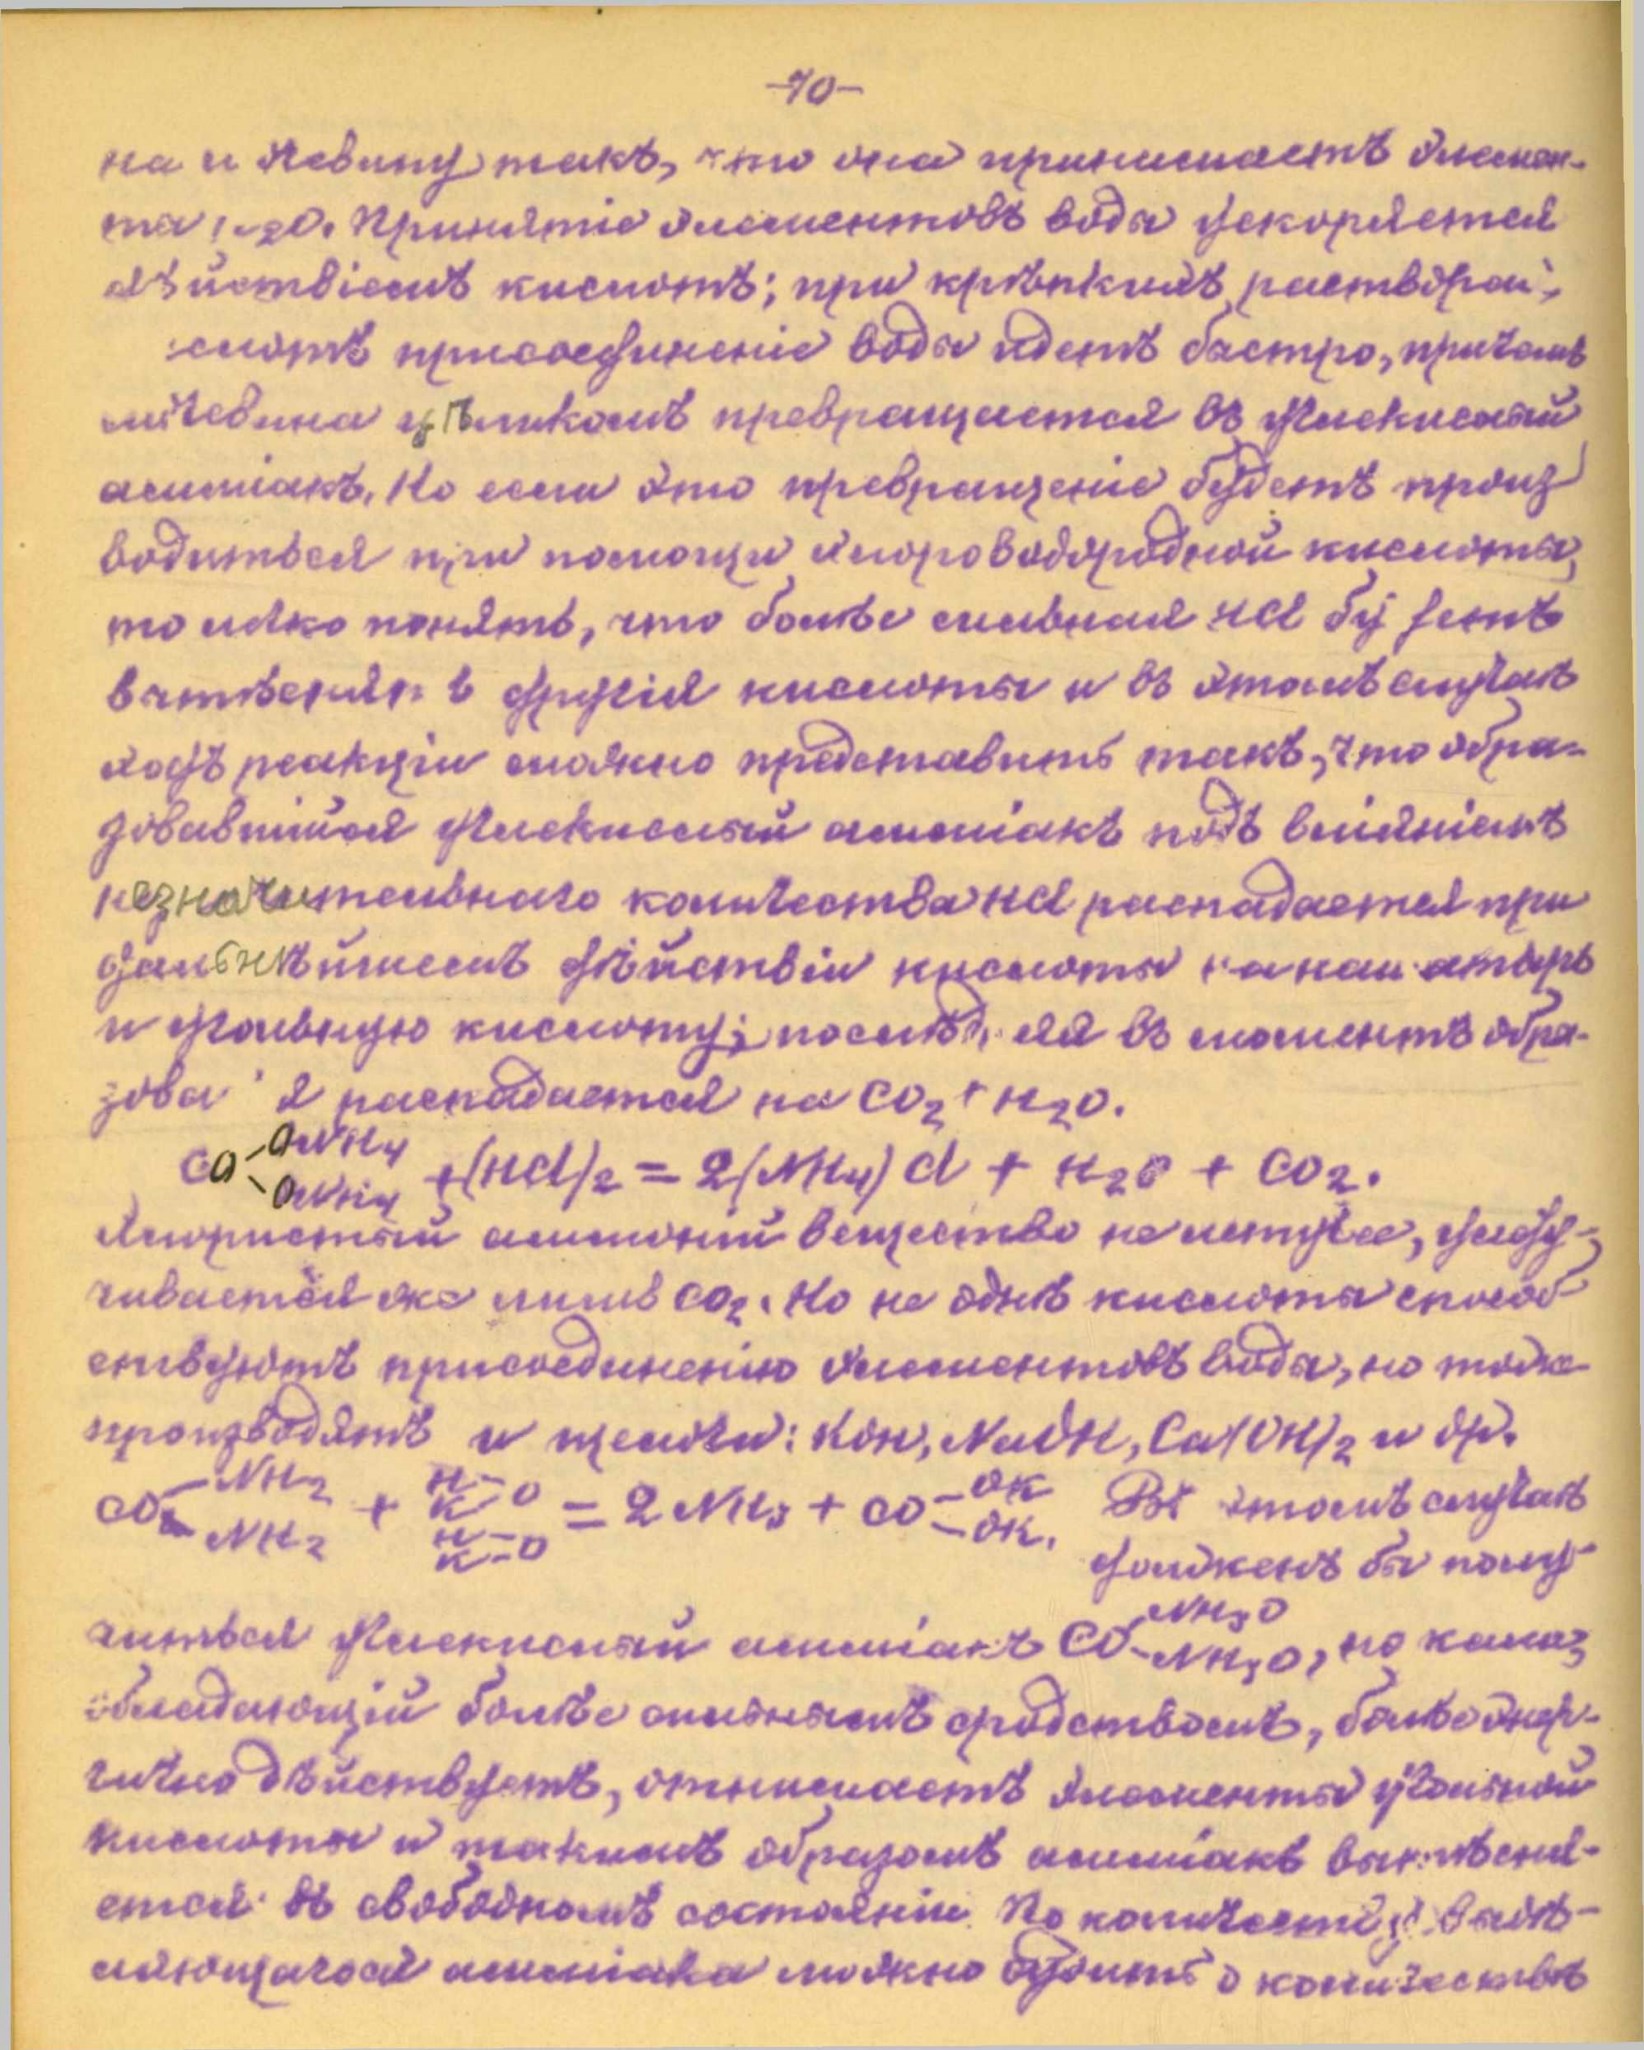 -70-
на и мочевину такъ, что она принимаетъ элемен-
ты H2O. Принятіе элементовъ воды ускоряется
дѣйствіемъ кислотъ; при крѣпкихъ растворахъ
кислотъ присоединеніе воды идетъ быстро, причемъ
мочевина цѣликомъ превращается въ углекислый
амміакъ. Но если это превращеніе будетъ произ
водиться при помощи хлороводородной кислоты,
то легко понять, что болѣе сильная HCl будетъ
вытѣснять другія кислоты и въ этомъ случаѣ
ходъ реакціи можно представить такъ, что обра-
зовавшійся углекислый амміакъ подъ вліяніемъ
незначительнаго количества HCl распадается при
дальнѣйшемъ дѣйствіи кислоты на нашатырь
и угольную кислоту; послѣдняя въ моментъ обра-
зованія распадается на CO2 + H2O.
CO-ONH4 -ONH4 + (HCl)2 = 2(NH4)Cl + H2O + CO2.
Хлористый аммоній вещество не летучее, улету-
чивается же лишь CO2. Но не однѣ кислоты способ
ствуютъ присоединенію элементовъ воды, но тоже
производятъ и щелочи: KOH, NaOH, Ca(OH)2 и др.
CO-NH2 -NH2 + H-K-O H-K-O = 2NH3 + CO-OK -OK. Въ этомъ случаѣ
долженъ бы полу-
читься углекислый амміакъ CO-NH3O -NH3O, но кали,
обладающій болѣе сильнымъ сродствомъ, болѣе энер-
гично дѣйствуетъ, отнимаетъ элементы угольной
кислоты и такимъ образомъ амміакъ вытѣсня-
ется въ свободномъ состояніи. По количеству выдѣ-
ляющагося амміака можно судить о количествѣ